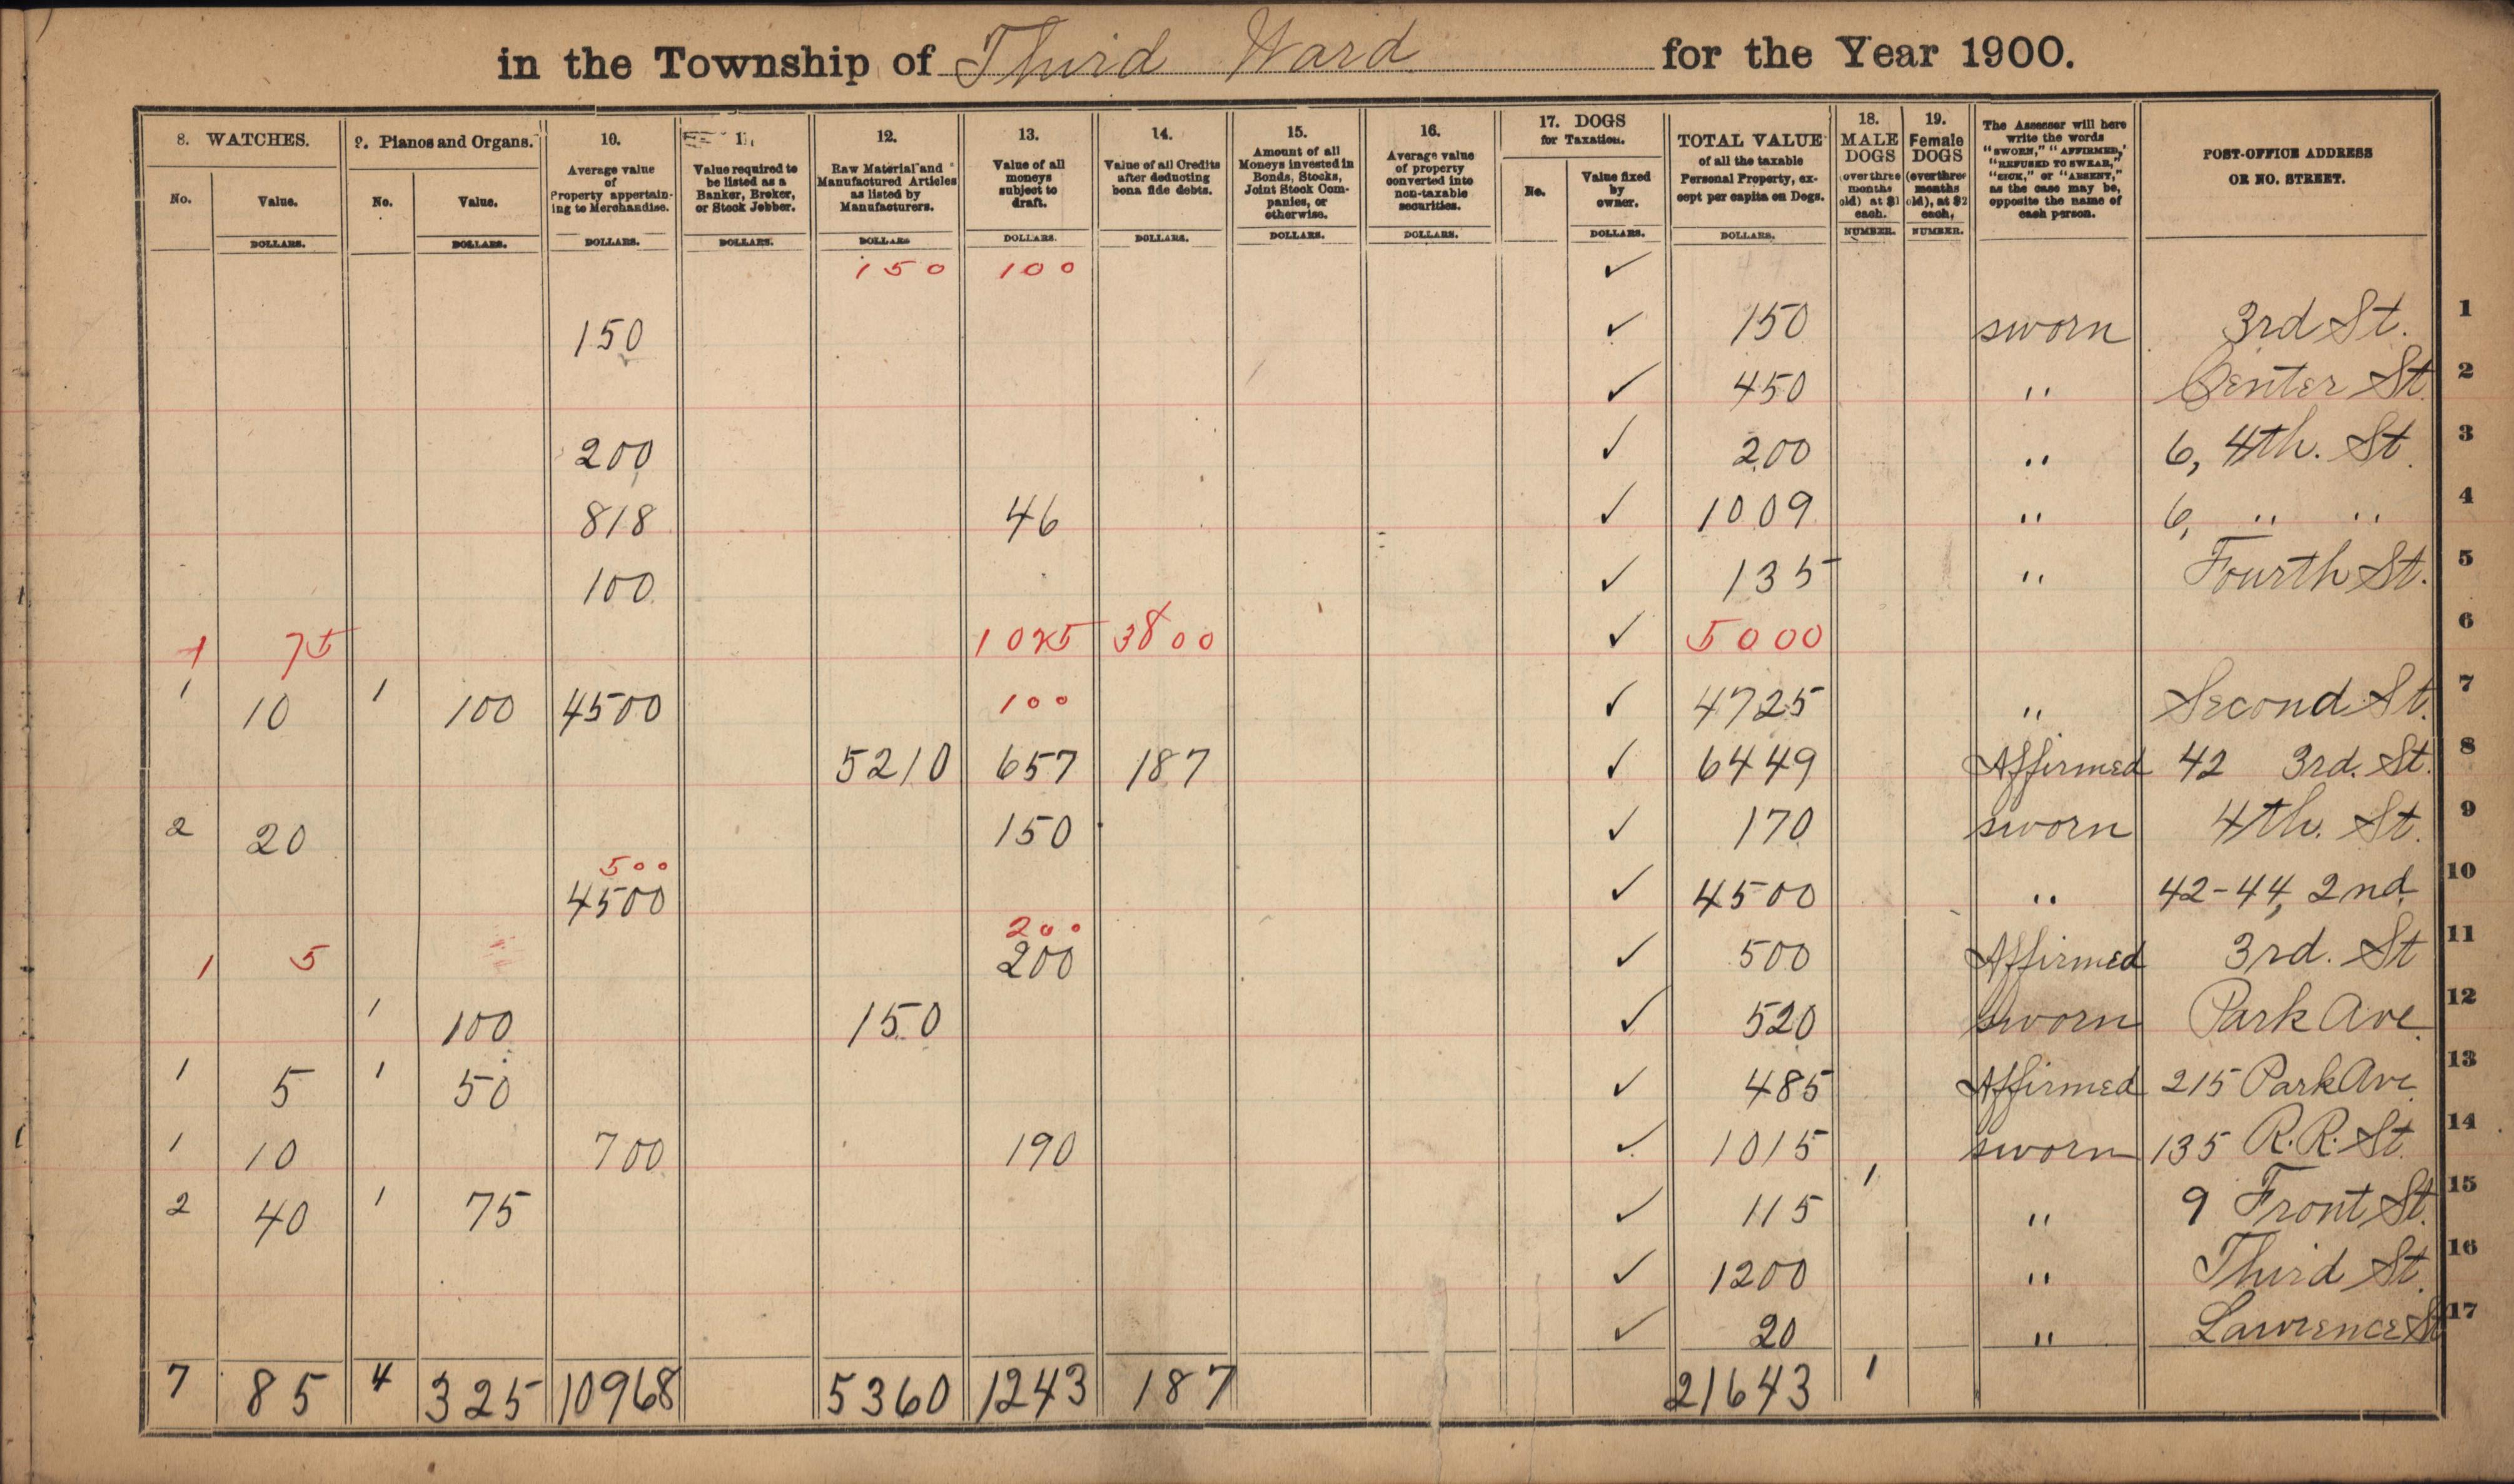 in the Township of Third Ward for the Year 1900.
8. WATCHES. 9. Pianos and Organs. 10. Average value of Property appertaining to Merchandise. 11. Value required to be listed as a Banker, Broker, or Stock Jobber. 12. Raw Material and Manufactured Articles as listed by Manufacturers. 13. Value of all moneys subject to draft. 14. Value of all Credits after deducting bona fide debts. 15. Amount of all Moneys invested in Bonds, Stocks, Joint Stock Companies, or otherwise. 16. Average value of property converted into non-taxable securities. 17. DOGS for Taxation. TOTAL VALUE of all the taxable Personal Property, except per capita on Dogs. 18. MALE DOGS (over three months old) at $1 each. 19. Female DOGS (over three months old), at $2 each, The Assessor will here write the words "SWORN," "AFFIRMED," "REFUSED TO SWEAR," "SICK," or "ABSENT," as the case may be, opposite the name of each person. POST-OFFICE ADDRESS OR NO. STREET.
No. Value. No. Value. No. Value fixed by owner.
DOLLARS. DOLLARS. DOLLARS. DOLLARS. DOLLARS DOLLARS. DOLLARS. DOLLARS. DOLLARS. DOLLARS. DOLLARS. NUMBER. NUMBER.
150 100 ✓
150 ✓ 150 sworn 3rd St. 1
✓ 450 " Center St. 2
200 ✓ 200 " 6, 4th. St. 3
818 46 ✓ 1009 " 6, " " 4
100 ✓ 135 " Fourth St. 5
1 75 1025 3800 ✓ 5000 6
1 10 1 100 4500 100 ✓ 4725 " Second St. 7
5210 657 187 ✓ 6449 Affirmed 42 3rd. St. 8
2 20 150 ✓ 170 sworn 4th. St. 9
500
4500 ✓ 4500 " 42-44, 2nd. 10
200
1 5 200 ✓ 500 Affirmed 3rd. St 11
1 100 150 ✓ 520 sworn Park Ave. 12
1 5 1 50 ✓ 485 Affirmed 215 Park Ave. 13
1 10 700 190 ✓ 1015 sworn 135 R.R. St. 14
2 40 1 75 ✓ 115 1 " 9 Front St. 15
✓ 1200 " Third St. 16
✓ 20 " Lawrence St 17
7 85 4 325 10968 5360 1243 187 21643 1